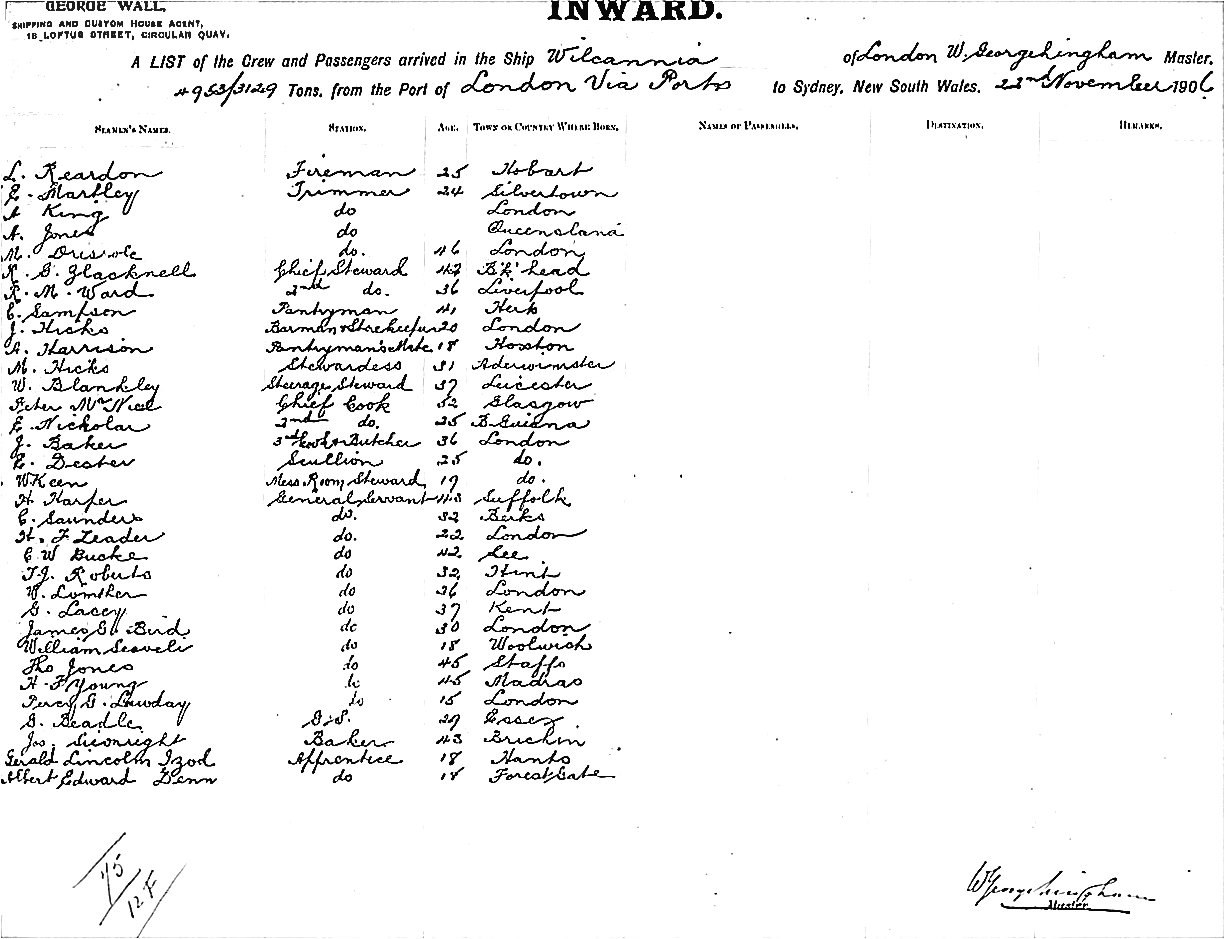 GEORGE WALL,
SHIPPING AND CUSTOM HOUSE AGENT,
18 LOFTUS STREET, CIRCULAR QUAY.
INWARD.
A LIST of the Crew and Passengers arrived in the Ship Wilcannia of London W. George Master,
4953/3129 Tons, from the Port of London Via Ports to Sydney, New South Wales, 22nd November 1906
SEAMEN'S NAMES. STATION. AGE. TOWN OR COUNTRY WHERE BORN. NAMES OF PASSENGERS. DESTINATION. REMARKS.
L. Reardon Fireman 25 Hobart
E. Martley Trimmer 24 Silvertown
A King do London
A. Jones do Queensland
M. do. 46 London
R. G. Glacknell Chief Steward 42 B'k'head
R. M. Ward 2nd do. 36 Liverpool
C. Sampson Pantryman 41
J. Hicks Barman & Storekeeper 20 London
A. Harrison Pantryman's Mate 18 Hoxton
M. Hicks Stewardess 31
W. Blankley Steerage Steward 37 Leicester
Peter McNeil Chief Cook 52 Glasgow
E. Nickolar 2nd do. 35 B. Guiana
J. Baker 3rd Cook & Butcher 36 London
E. Dester Scullion 25 do.
W Keen Mess Room Steward 19 do.
H. Harper General Servant 43 Suffolk
C. Saunders do. 32 Berks
H. F Leader do. 22 London
C W Bucke do 42 Lee
T.J. Roberts do 32 Flint
W. Lowther do 36 London
G. Lacey do 37 Kent
James G. Bird do 30 London
William do 18 Woolwich
Tho Jones do 45 Staffs
H. F Young do 45 Madras
Percy G. Lowday do 15 London
G. Beadle G.S. 29 Essex
Jos. Sievwright Baker 43 Brichin
Gerald Lincoln Izod Apprentice 18 Hants
Albert Edward Denn do 18 Forest Gate
75
12 F
W George
Master